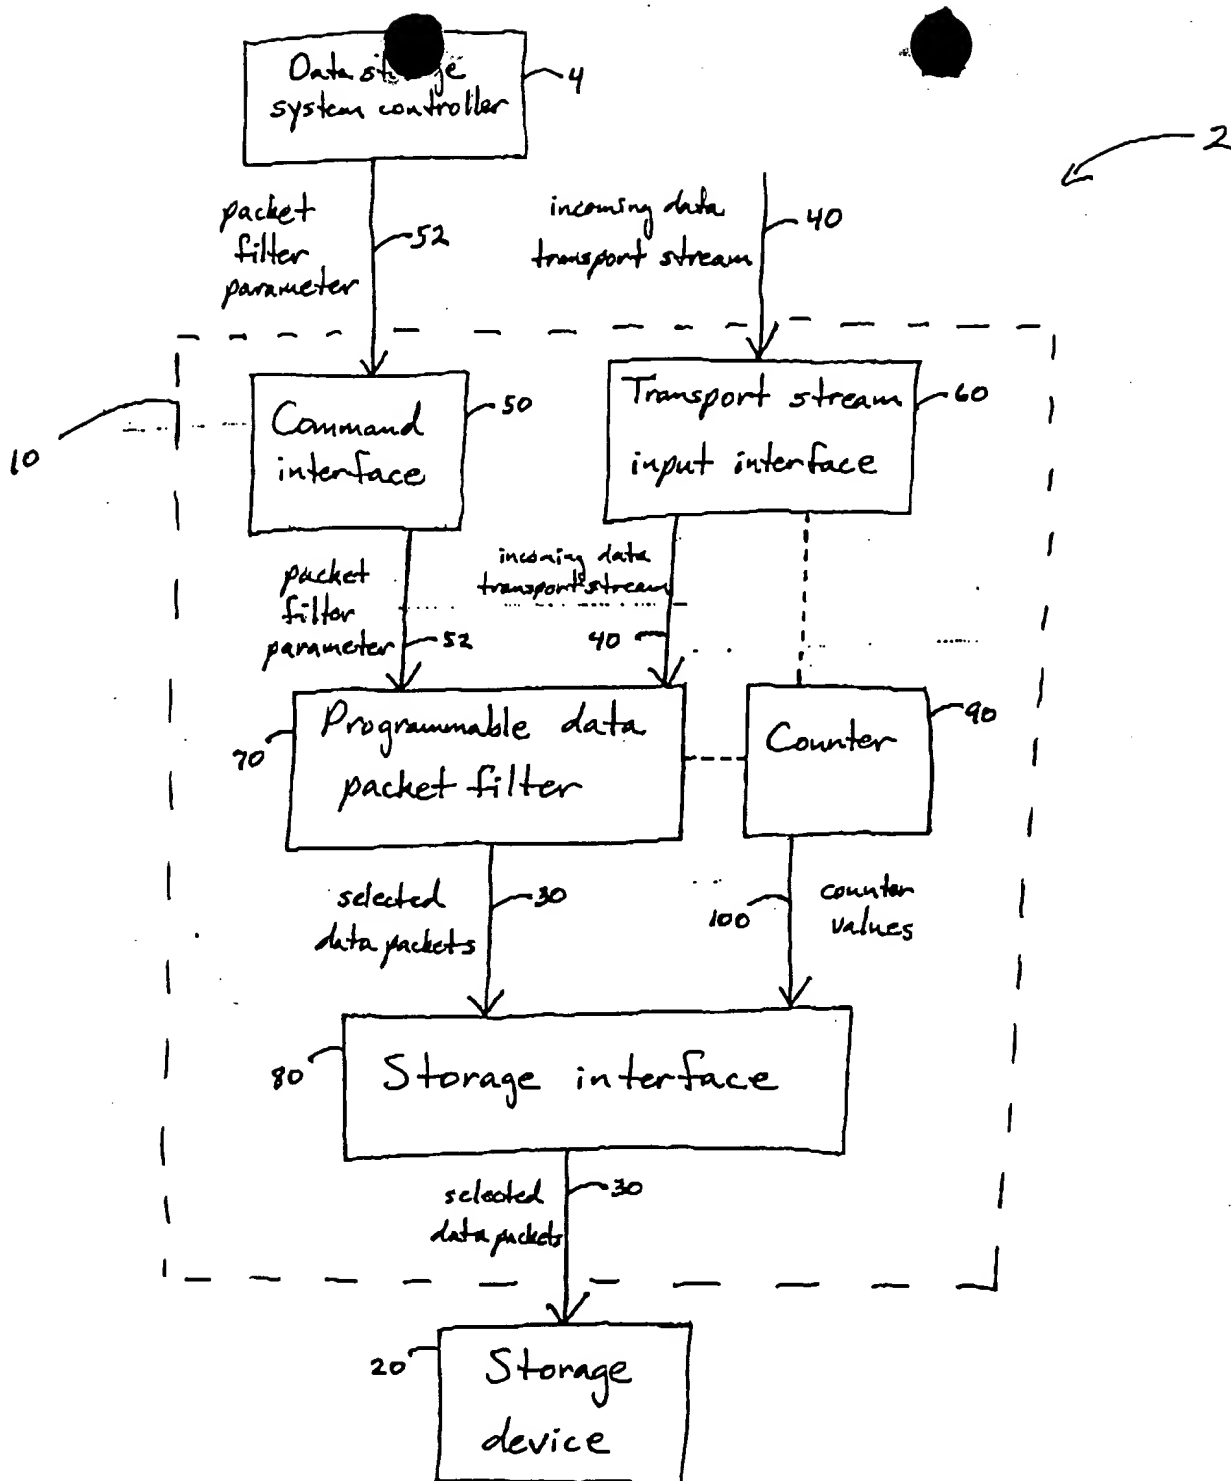 Data
system controller
4
2
packet
filter
parameter
52
incoming data
transport stream
40
10
Command
interface
50
Transport stream
input interface
60
packet
filter
parameter
52
incoming data
transport stream
40
Programmable data
packet filter
70
Counter
90
selected
data packets
30
100
counter
values
Storage interface
80
selected
data packets
30
20
Storage
device